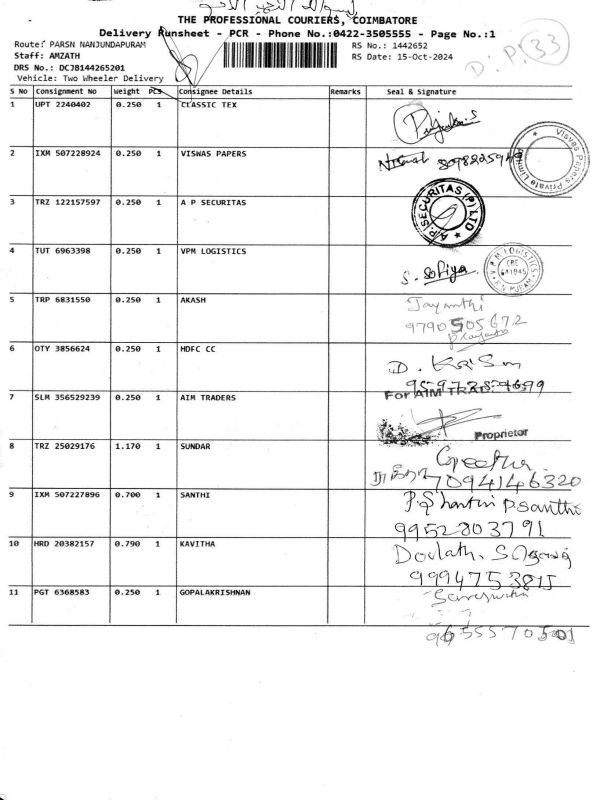 THE PROFESSIONAL COURIERS, COIMBATORE
Delivery Runsheet - PCR - Phone No.:0422-3505555 - Page No.:1
Route: PARSN NANJUNDAPURAM
RS No.: 1442652
D.P. 33
Staff: AMZATH
RS Date: 15-Oct-2024
DRS No.: DCJB144265201
Vehicle: Two Wheeler Delivery
S No Consignment No Weight PCS Consignee Details Remarks Seal & Signature
1 UPT 2240402 0.250 1 CLASSIC TEX
2 IXM 507228924 0.250 1 VISWAS PAPERS
Visvas Papers Private Limited
3 TRZ 122157597 0.250 1 A P SECURITAS
A.P. SECURITAS (P) LTD
4 TUT 6963398 0.250 1 VPM LOGISTICS S. Sofiya
VPM LOGISTICS
CBE
5 TRP 6831550 0.250 1 AKASH Jayanthi
9790505672
6 OTY 3856624 0.250 1 HDFC CC
7 SLM 356529239 0.250 1 AIM TRADERS For AIM
Proprietor
8 TRZ 25029176 1.170 1 SUNDAR Geetha
7094146320
9 IXM 507227896 0.700 1 SANTHI P. Shanthi P.Santhi
9952803791
10 HRD 20382157 0.790 1 KAVITHA Dovlath.
9994753815
11 PGT 6368583 0.250 1 GOPALAKRISHNAN